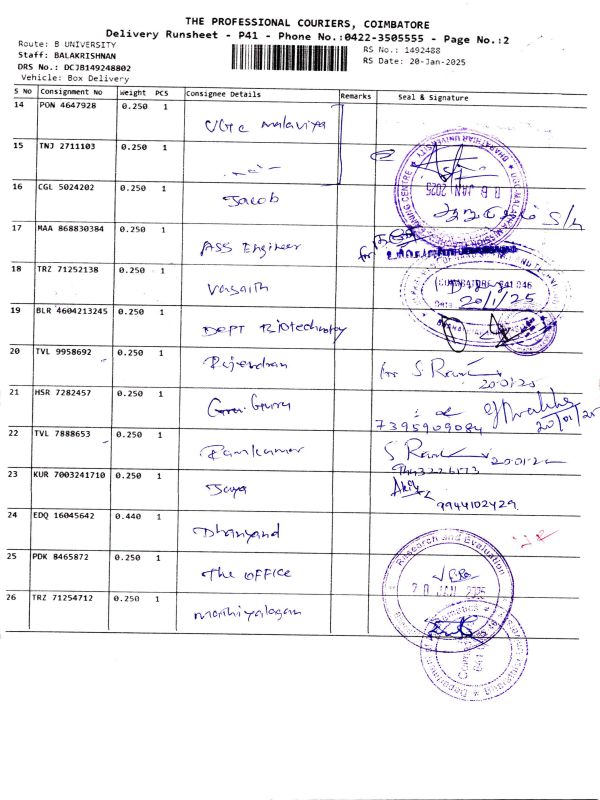 THE PROFESSIONAL COURIERS, COIMBATORE
Delivery Runsheet - P41 - Phone No.:0422-3505555 - Page No.:2
Route: B UNIVERSITY
RS No.: 1492488
Staff: BALAKRISHNAN
RS Date: 20-Jan-2025
DRS No.: DCJB149248802
Vehicle: Box Delivery
S No Consignment No Weight PCS Consignee Details Remarks Seal & Signature
14 PON 4647928 0.250 1 UGC Malaviya
15 TNJ 2711103 0.250 1
16 CGL 5024202 0.250 1 Jacob
17 MAA 868830384 0.250 1 ASS Engineer
for
18 TRZ 71252138 0.250 1 Vasaith
COIMBATORE 641 046
20/1/25
19 BLR 4604213245 0.250 1 DEPT Biotechnology
20 TVL 9958692 0.250 1 Rajendran
for S
20.01.25
21 HSR 7282457 0.250 1
7395909084
20/01/25
22 TVL 7888653 0.250 1 Ramkumar
S
23 KUR 7003241710 0.250 1 Jaya
9944102429
24 EDQ 16045642 0.440 1 Dhanyand
25 PDK 8465872 0.250 1 The OFFice
Research and Evaluation
20 JAN 2025
26 TRZ 71254712 0.250 1 Mathiyalagan